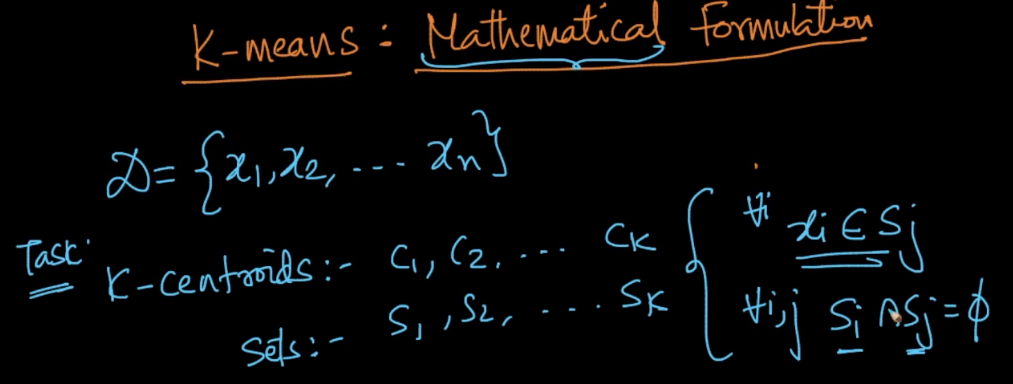 K-means : Mathematical Formulation
D = {x₁, x₂, ... xₙ}
Task:
K-centroids :- C₁, C₂, ... Cₖ
∀i xi ∈ Sj
Sets :- S₁, S₂, ... Sₖ
∀i,j Si ∩ Sj = ϕ